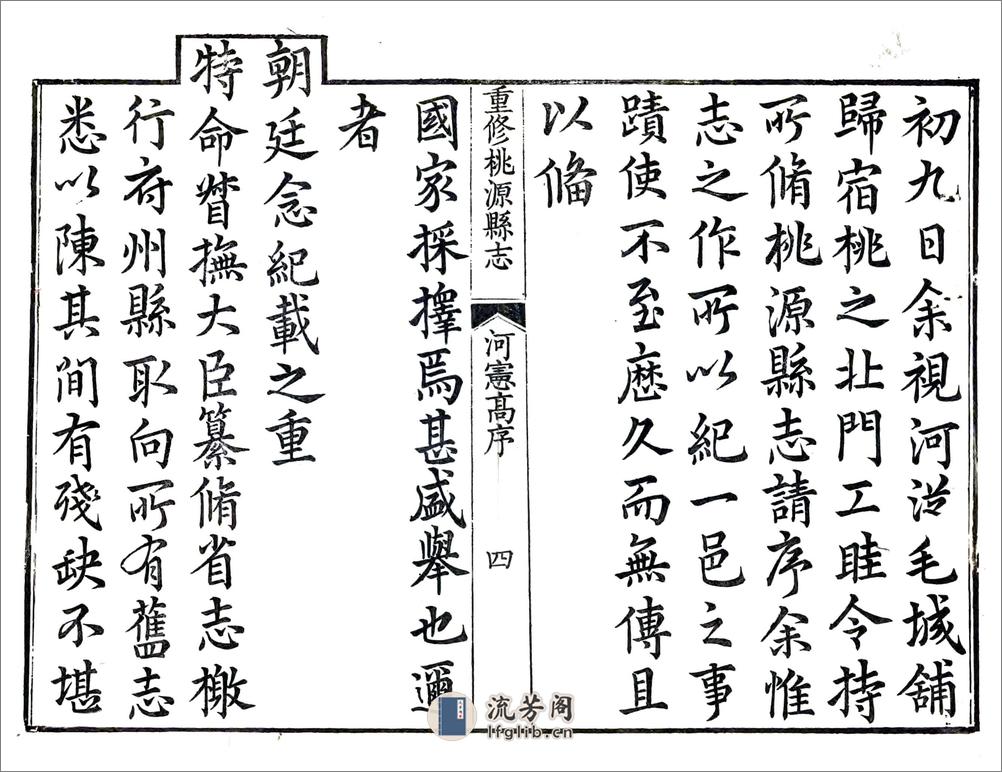 初九日余視河沿毛城舖
歸宿桃之北門工眭令持
所脩桃源縣志請序余惟
志之作所以紀一邑之事
蹟使不至歷久而無傳且
以俻
重修桃源縣志
河憲高序
四
國家採擇焉甚盛舉也邇
者
朝廷念紀載之重
特命督撫大臣纂脩省志檄
行府州縣取向所有舊志
悉以陳其間有殘缺不堪
流芳阁
lfglib.cn